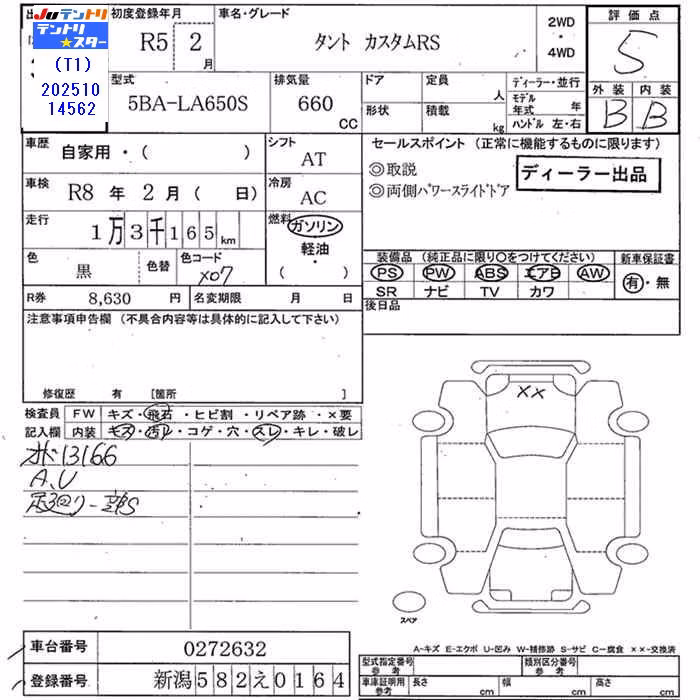 Juテントリ
テントリ★スター
(T1)
202510
14562
初度登録年月
R5 2
月
車名・グレード
タント カスタムRS
2WD
・
4WD
評価点
5
外装 内装
B B
型式
5BA-LA650S
排気量
660
CC
ドア
形状
定員
人
積載
kg
ディーラー・並行
モデル
年式 年
ハンドル 左・右
車歴
自家用・( )
シフト
AT
セールスポイント (正常に機能するものに限ります)
◎取説
◎両側パワースライドドア
ディーラー出品
車検
R8 年 2 月 ( 日)
冷房
AC
走行
1万3千165km
燃料
ガソリン
軽油
・
( )
色
黒
色替
色コード
X07
装備品 (純正品に限り○をつけてください)
PS PW ABS エアB AW
SR ナビ TV カワ
新車保証書
有・無
R券 8,630 円
名変期限 月 日
後日品
注意事項申告欄 (不具合内容等は具体的に記入して下さい)
修復歴 有 [箇所 ]
検査員 FW キズ・飛石・ヒビ割・リペア跡・×要
記入欄 内装 キズ・汚レ・コゲ・穴・スレ・キレ・破レ
オド13166
A,U
足廻り一部S
XX
スペア
A-キズ E-エクボ U-凹み W-補修跡 S-サビ C-腐食 ××-交換済
車台番号 0272632
登録番号 新潟582え0164
型式指定番号
参考
類別区分番号
参考
車庫証明用
参考
長さ cm
幅 cm
高さ cm